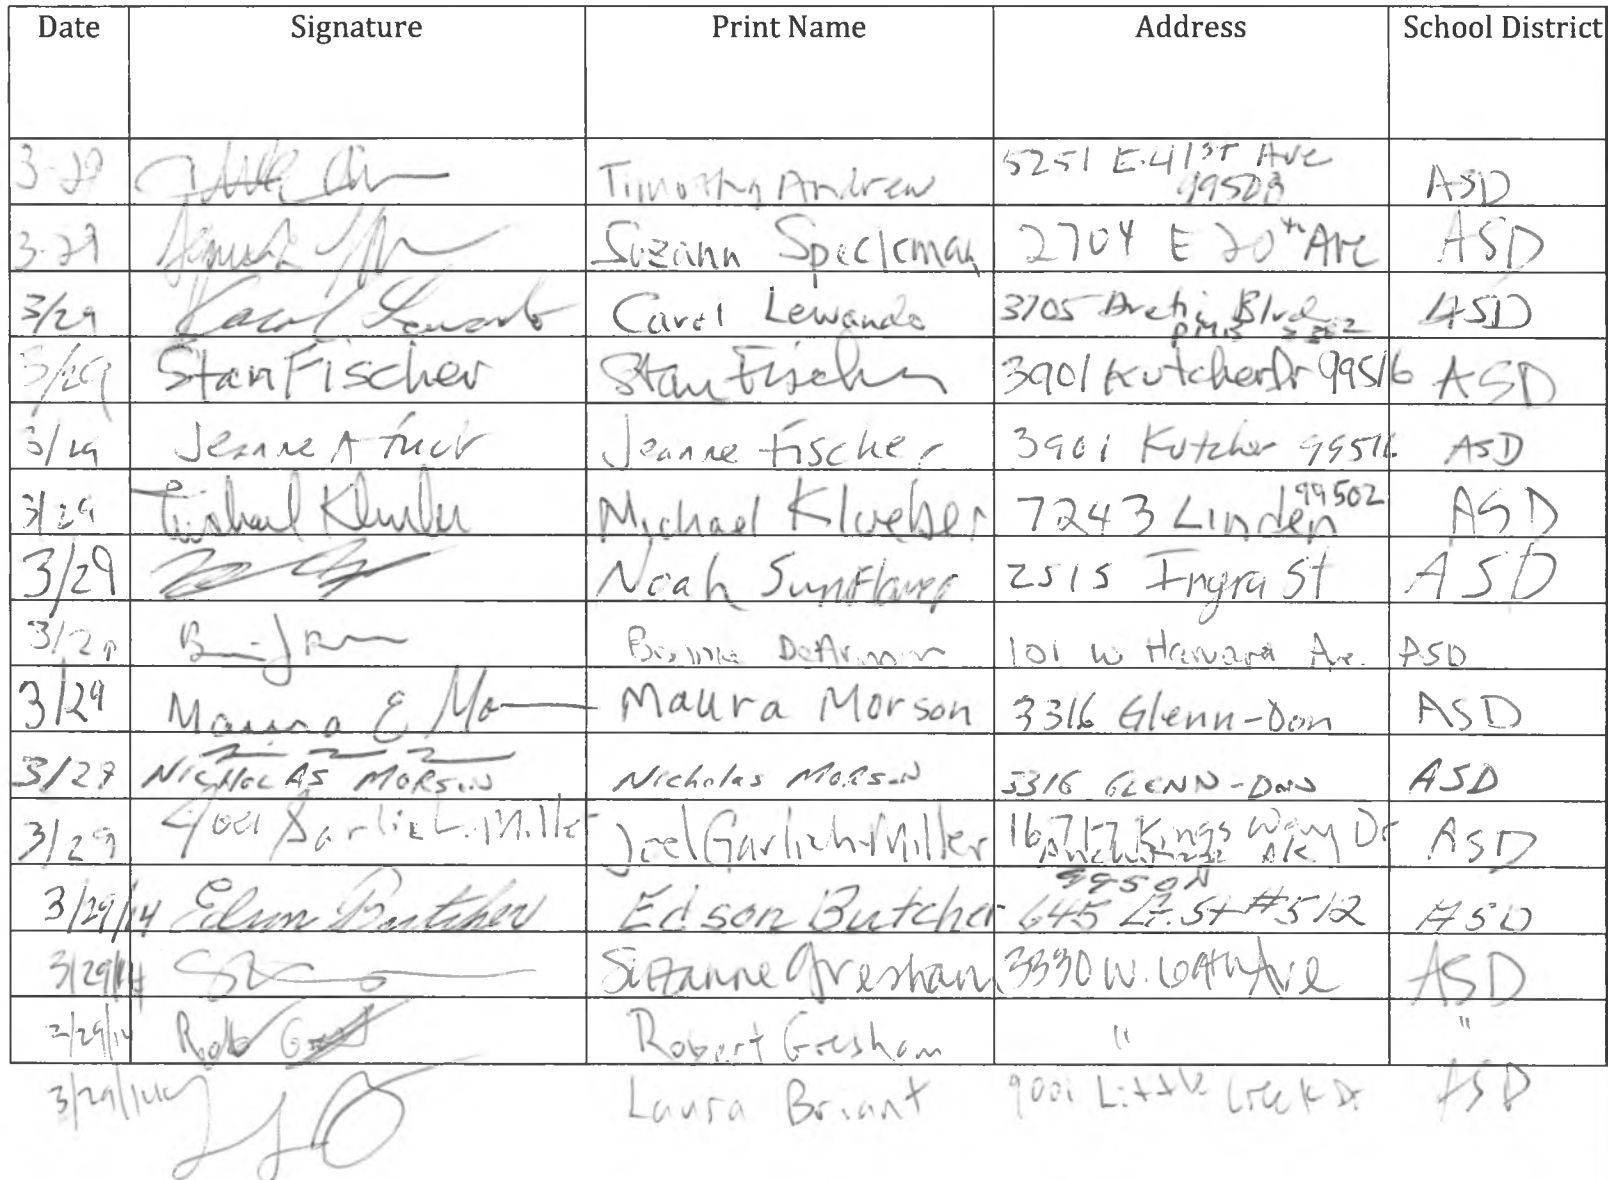 Date Signature Print Name Address School District
3-29 Timothy Andrew 5251 E. 41st Ave 99508 ASD
3-29 Suzann Speckman 2704 E 20th Ave ASD
3/29 Carol Lewando 3705 Arctic Blvd PMB ASD
3/29 Stan Fischer Stan Fischer 3901 Kutcher Dr 99516 ASD
3/29 Jeanne A Jeanne Fischer 3901 Kutcher 99516 ASD
3/29 Michael Klueber 7243 Linden 99502 ASD
3/29 Noah Sunflower 2515 Ingra St ASD
3/29 Bonnie DeArmon 101 W Harvard Ave. ASD
3/29 Maura E Mo Maura Morson 3316 Glenn-Don ASD
3/29 NICHOLAS MORSON Nicholas MORSON 3316 GLENN-DON ASD
3/29 Joel Garlich-Miller Joel Garlich-Miller 16717 Kings Way Dr AK ASD
3/29/14 Edson Butcher Edson Butcher 645 St #512 ASD
3/29/14 Suzanne Gresham 3330 W. Ave ASD
3/29/14 Rob Robert Gresham " "
3/29/14 Laura Briant 9001 Little Creek Dr ASD